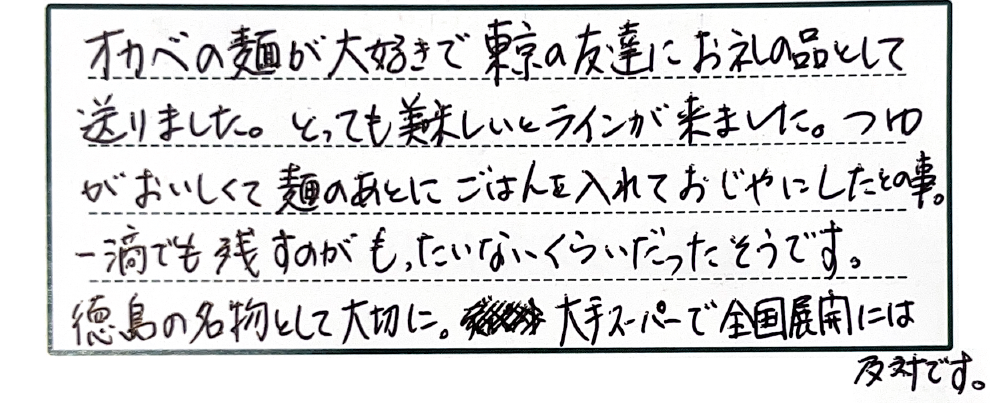 オカベの麺が大好きで東京の友達にお礼の品として
送りました。とっても美味しいとラインが来ました。つゆ
がおいしくて麺のあとにごはんを入れておじやにしたとの事。
一滴でも残すのがもったいないくらいだったそうです。
徳島の名物として大切に。大手スーパーで全国展開には
反対です。